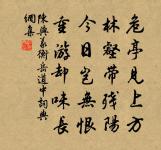 危亭見上方
林壑帶殘陽
今日豈無恨
重游却味長
陳與義衡岳道中詞典
網集